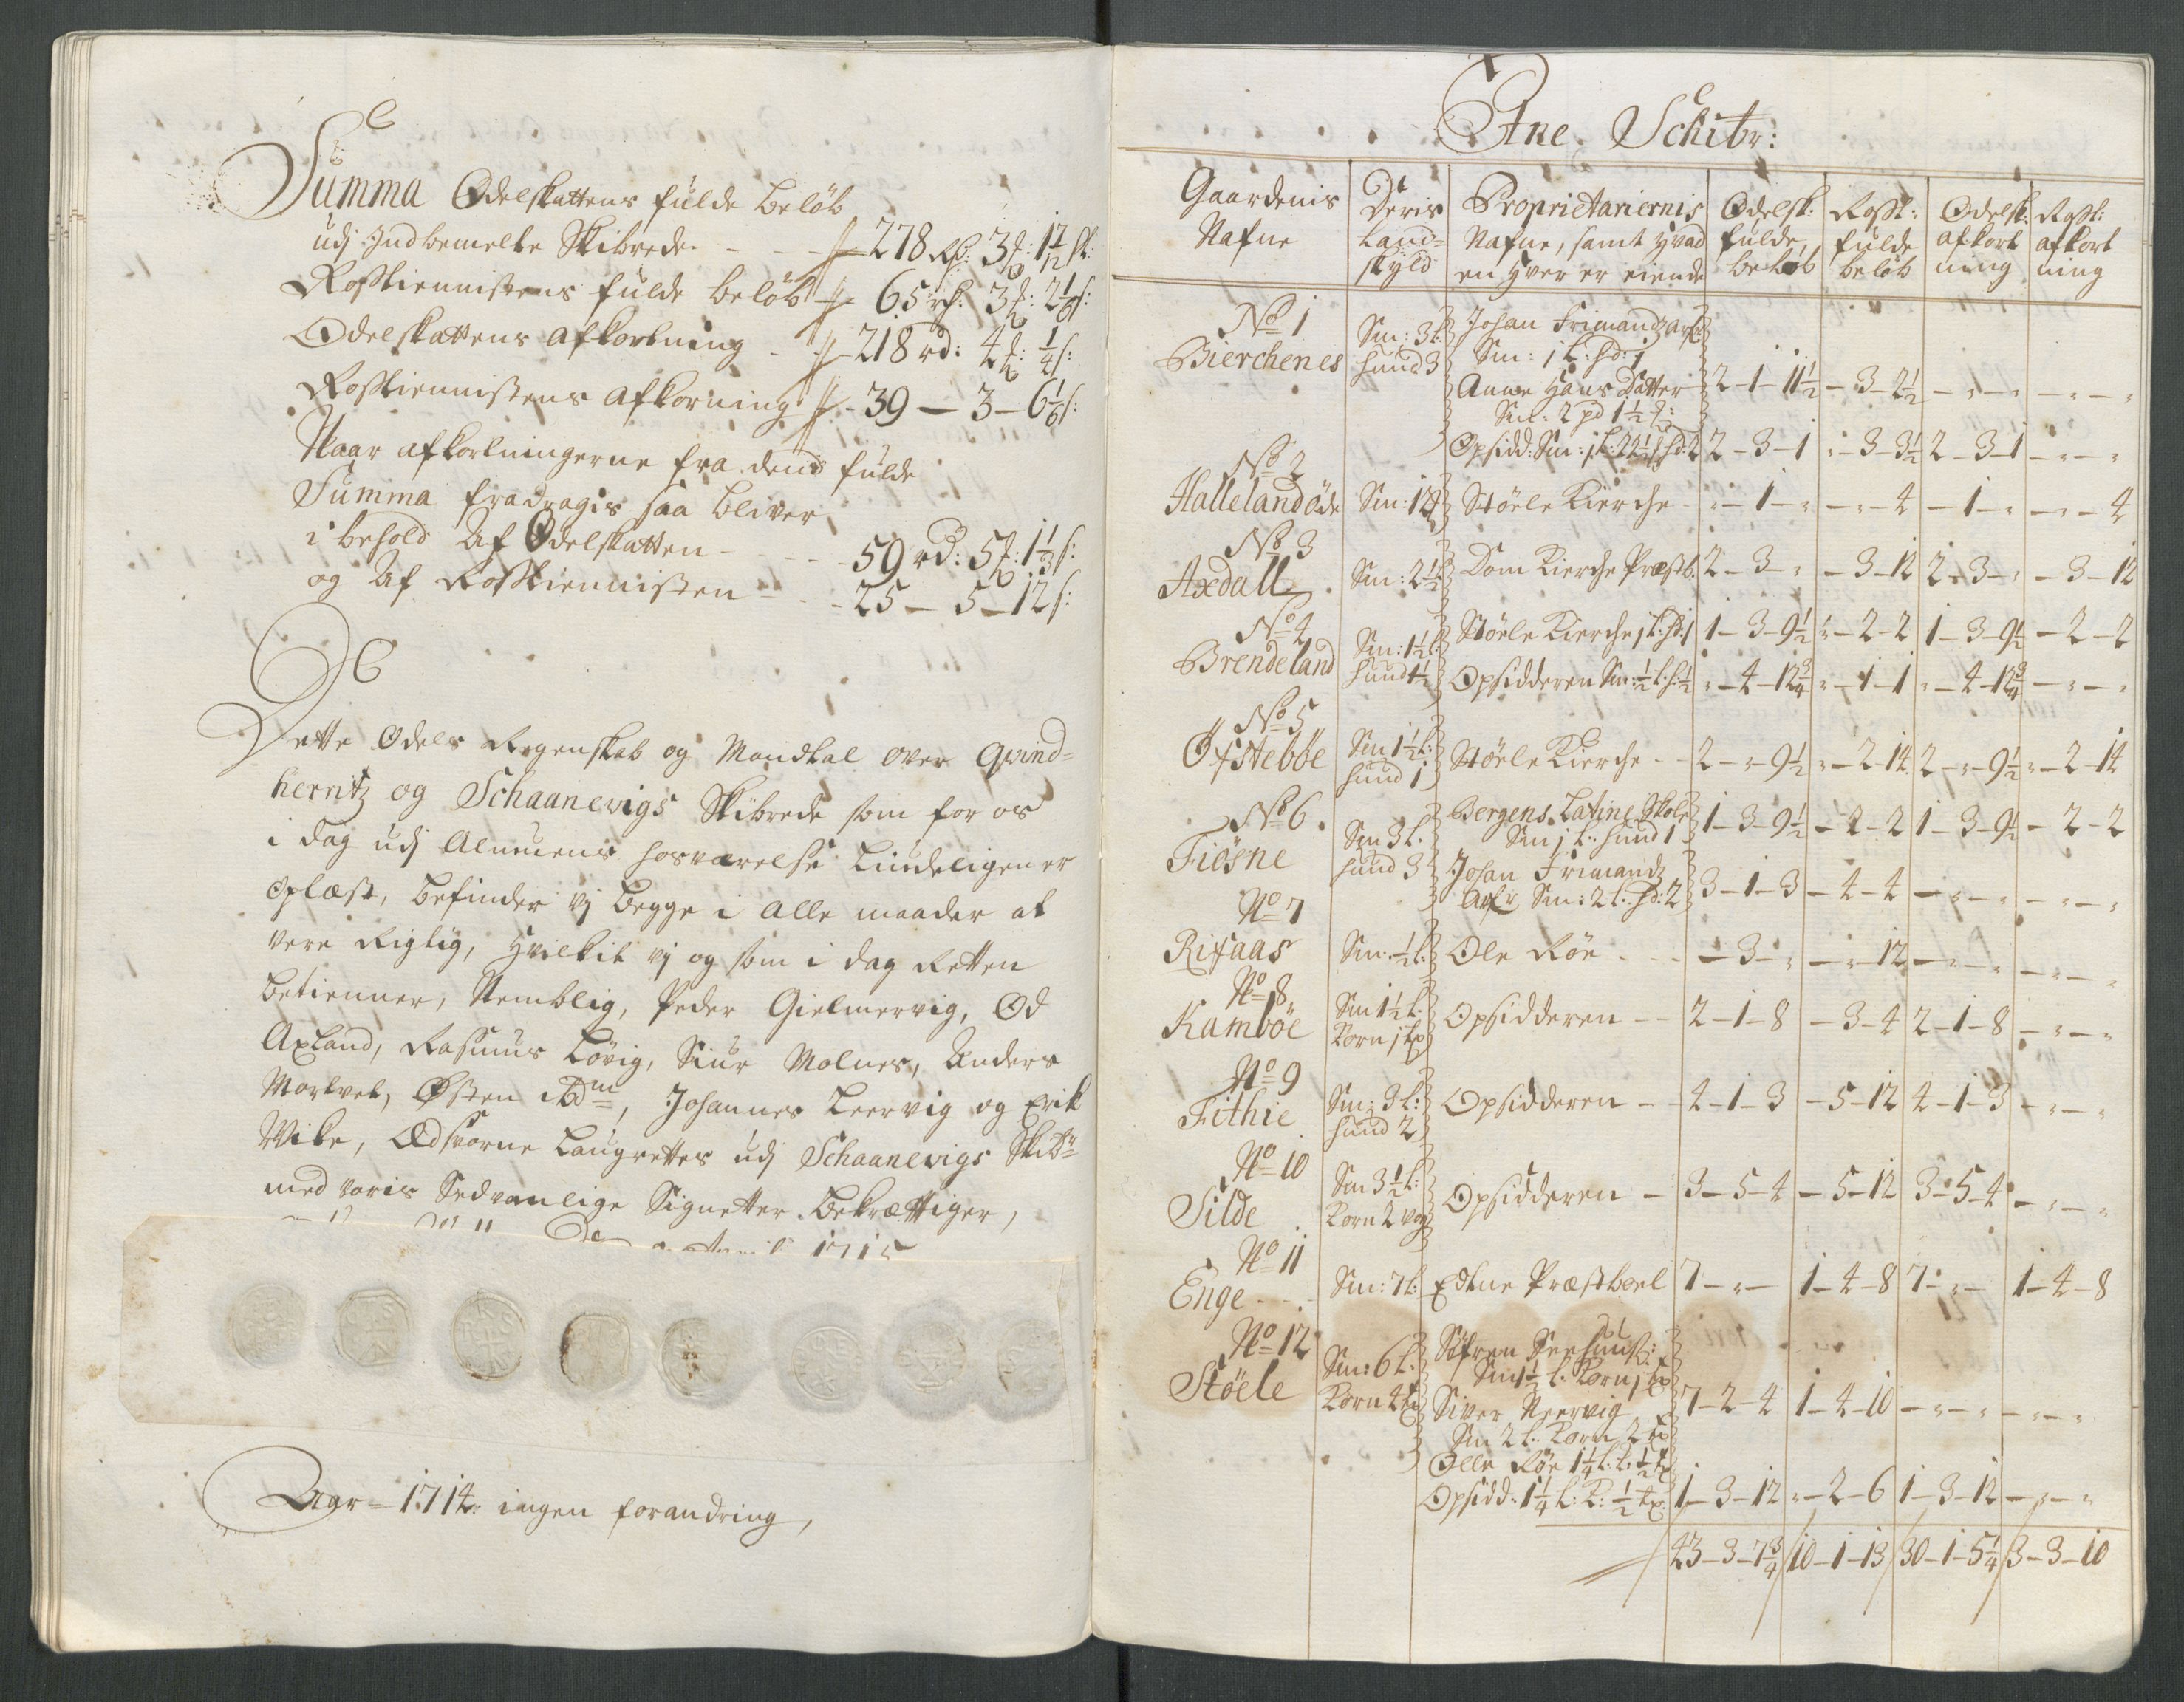 Summa Odelskattens fulde beløb
udj Indbemelte Skibrede - - - 278 rd: 3 ℔: 1
Rosstiennistens fulde beløb 65 rd: 3 ℔: 2 1/6 s:
Odelskattens afkortning - 218 rd: 4 ℔: 1/4 s:
Rosstiennistens afkorning - 39 - 3 - 6 1/6 s:
Naar afkortningerne fra dend fulde
Summa fradragis saa bliver
i behold Af Odelskatten - - - 59 rd: 5 ℔: 1 1/3 s:
og Af Rosstiennisten - - - 25 - 5 - 12 s:
Dette Odels Regenskab og Mandtal over Qvind-
herritz og Schaanevigs Skibrede som for os
i dag udj Almuens hosværelse liudeligen er
oplæst, befinder vj begge i alle maader at
vere Rigtig, hvilkit vj og som i dag Retten
betienner, Nemblig, Peder Gielmervig, Od
Axland, Rasmus Løvig, Siur Molnes, Anders
Mortvet, Østen ibdm, Johannes Leervig og Erik
Wike, Ædsorne Laugrettes udj Schaanevigs Skibr:
med voris Sedvanlige Signetter bekræfftiger,
1715
Aar - 1714: ingen forandring,
Etne Schibr:
Gaardenis Nafne | Deris Land-skyld | Proprietariernis Nafne, samt hvad en hver er eiende | Odelsk: fulde beløb | Rosst: fulde beløb | Odelsk: afkortning | Rosst: afkortning
No 1
Bierchenes Sm: 3 l: hund 3 Johan Frimandz arf:
Sm: j l: hd: j
Anne Hans Datter 2-1-11 1/2 - 3-2 1/2 - " - " - " - "
Sm: 2 pd 1 1/2 ℔:
Opsidd: Sm: j l: 22 1/2 ℔ hd: 2 2-3-1 "-3-3 1/2 2-3-1 - " - "
No 2
Hallelandøde Sm: 12 ℔ Støele Kierche - "-1-" -"-4 -1-" -"-4
No 3
Axdall Sm: 2 1/2 Dom Kierche Præstb: 2-3-" -3-12 2-3-" -3-12
No 4
Brendeland Sm: 1 1/2 l: hund 1 1/2 Støele Kierche j l: hd: j 1-3-9 1/2 "-2-2 1-3-9 1/2 -2-2
Opsidderen Sm: 1/2 l: h: 1/2 "-4-12 3/4 "-1-1 "-4-12 3/4 -"-"
No 5
Øfstebbe Sm 1 1/2 l: hund 1 Støele Kierche - - 2-"-9 1/2 "-2-14 2-"-9 1/2 "-2-14
No 6
Fiösne Sm 3 l: hund 3 Bergens Latine Skole
Sm j l: hund 1 1-3-9 1/2 -2-2 1-3-9 1/2 -2-2
Johan Frimandz
Arfv: Sm: 2 l: hd: 2 3-1-3 -4-4 -"-" -"-"
No 7
Rifaas Sm: 1/2 l: Ole Røe - - -3-" -"-12 -"-" -"-"
No 8
Kamböe Sm 1 1/2 l: Korn j tp Opsidderen - - 2-1-8 -3-4 2-1-8 -"-"
No 9
Fithie Sm: 3 l: hund 2 Opsidderen - - 4-1-3 -5-12 4-1-3 -"-"
No 10
Silde Sm 3 1/2 l: Korn 2 vog Opsidderen - 3-5-4 -5-12 3-5-4 -"-"
No 11
Enge - - Sm: 7 l: Edtne Præstbeel 7-"- 1-4-8 7-"- 1-4-8
No 12
Støele Sm: 6 l: Korn 4 tp Søfren Seehuus:
Sm 1 1/2 l: Korn j tp
Siver Neervig 7-2-4 1-4-10 -"-" -"-"
Sm 2 l: Korn 2 tp
Olle Røe 1 1/4 l: k: 1/2 tp
Opsidd: 1 1/4 l: K: 1/2 tp: 1-3-12 "-2-6 1-3-12 -"-"
43-3-7 3/4 10-1-13 30-1-5 1/4 3-3-10